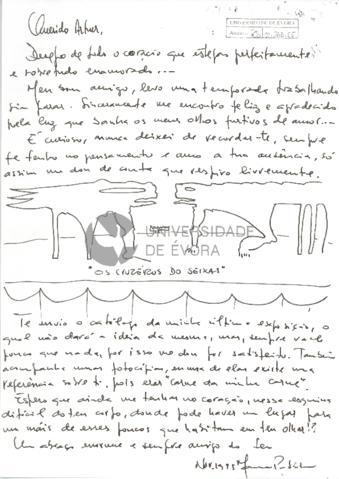 Querido Artur,
UNIVERSIDADE DE ÉVORA
Desejo de todo o coração que estejas perfeitamente
e sobretudo enamorado...
Meu bom amigo, levo uma temporada trabalhando
sin parar. Sinceramente me encontro feliz e agradecido
pela luz que banha os meus olhos furtivos de amor...
É curioso, nunca deixei de recordar-te, sempre
te tenho no pensamento e amo a tua ausência, só
assim me dou de conta que respiro livremente.
UNIVERSIDADE
DE ÉVORA
"OS CRUZEIROS DO SEIXAS"
Te envio o catálogo da minha última exposição, o
qual não dará a ideia da mesma, mas, sempre vale
pouco que nada, por isso me dou por satisfeito. Também
acompanho umas fotocópias, en uma de elas existe uma
referência sobre ti, pois eres "carne da minha carne".
Espero que ainda me tenhas no coração, nessa esquina
difícil do teu corpo, donde pode haver um lugar para
um máis de esses poucos que habitam em teu olhar!?
Um abraço enorme e sempre amigo do teu